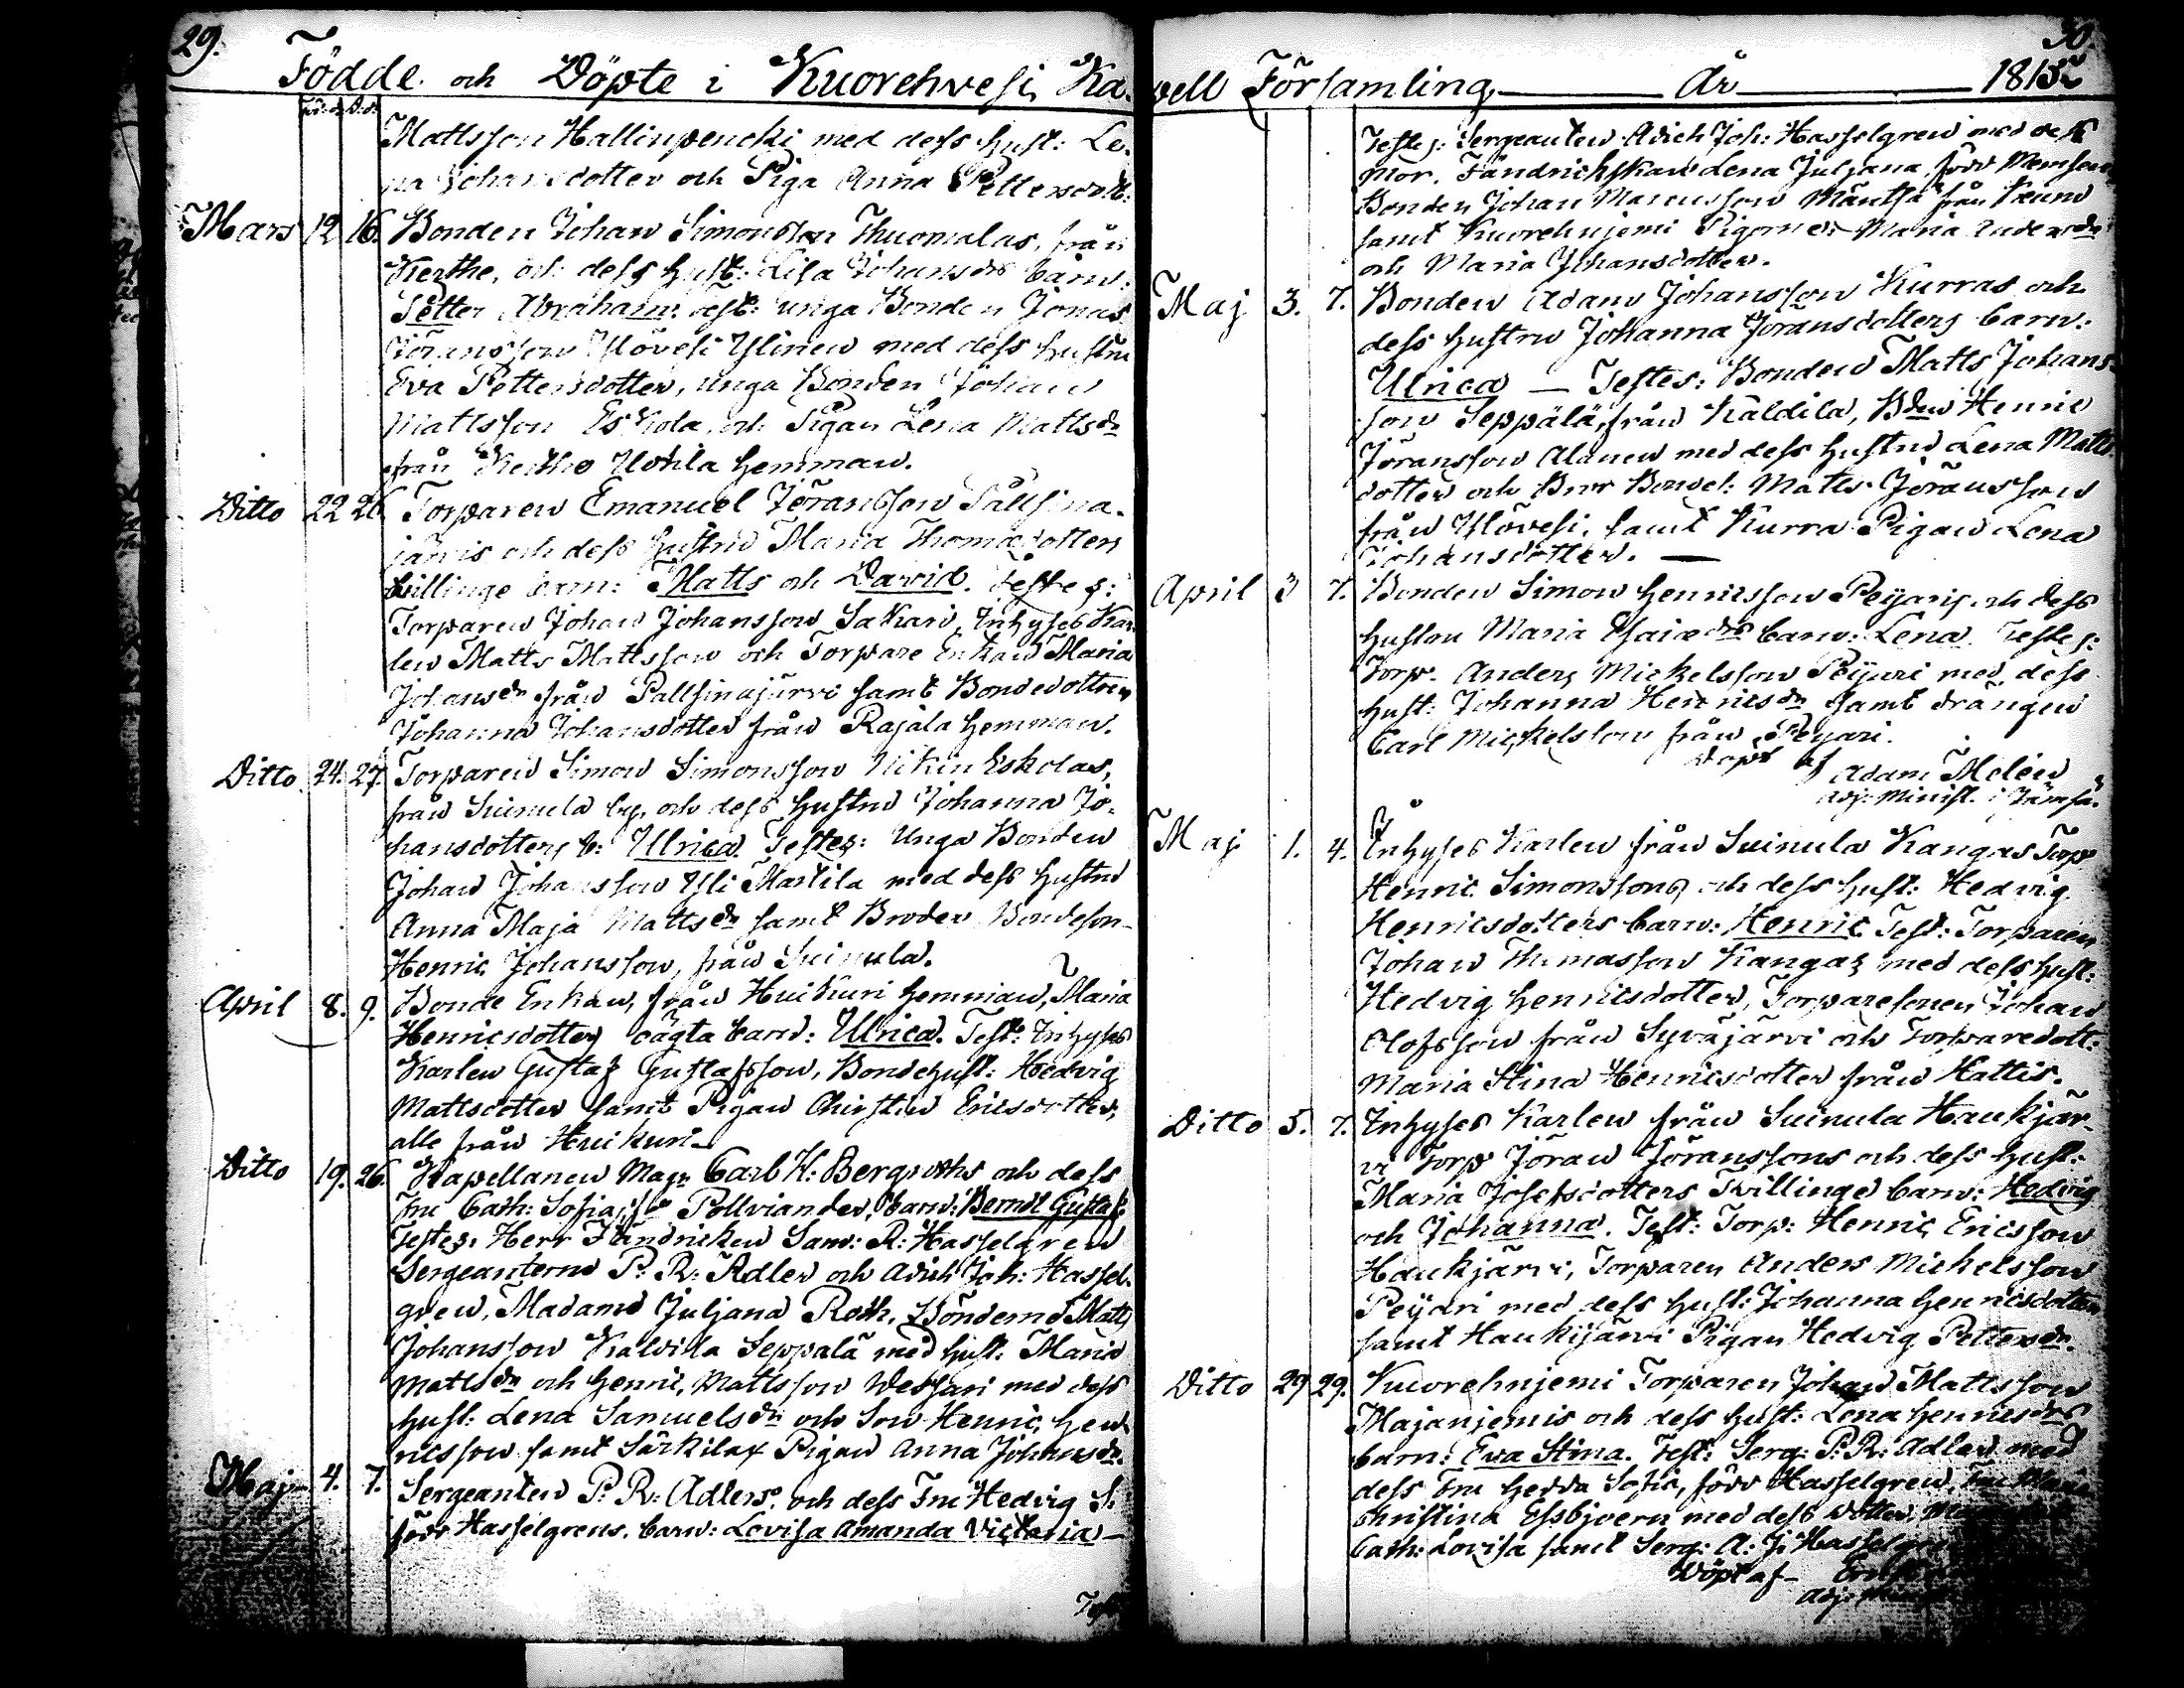 29.
Födde och Döpte i Kuorehvesi Ka-
Föd: d. D: d:
Mattsson Hallinpencki med dess hust: Le-
na Johansdotter och Piga Anna Pettersdott:
Mars 12 16. Bonden Johan Simonsson Thuomalas, från
Kerthe, och dess hust: Lisa Johansdrs barn:
Petter Abraham. Test: unga Bonden Jonas
Jöransson Ylövesi Ylinen med dess hustru
Eva Pettersdotter, unga Bonden Johan
Mattsson Eskola, och Pigan Lena Mattsdr
från Kerthe Uotila hemman.
Ditto 22 26 Torparen Emanuel Jöransson Pällsina-
järvis och dess hustru Maria Thomasdotters
tvillinge barn: Matts och David. Testes:
Torparen Johan Johansson Sakari, Inhyses Kar-
len Matts Mattsson och Torpare Enkan Maria
Johansdr från Pallsinajärvi samt Bondedottren
Johanna Johansdotter från Rajala hemman.
Ditto 24. 27. Torparen Simon Simonsson Eskolas,
från Suinula by, och dess hustru Johanna Jo-
hansdotters b: Ulrica. Testes: Unga Bonden
Johan Johansson Yli Marttila med dess hustru
Anna Maja Mattsdr samt Broder Bondeson
Henric Johansson, från Suinula.
April 8. 9. Bonde Enkan, från Huikuri hemman, Maria
Henricsdotters oägta barn: Ulrica. Test: Inhyses
Karlen Gustaf Gustafsson, Bondehust: Hedvig
Mattsdotter samt Pigan Christin Ericsdotter,
alle från Huikuri
Ditto 19. 26. Kapellanen Magr Carl H: Bergroths och dess
Fru Cath: Sofia, Pollviander, barn: Berndt Gustaf.
Testes: Herr Fändricken Sam: R: Hasselgren
Sergeanterne P: R: Adler och Adich Joh: Hassel-
gren, Madame Juljana Roth, Bönderne Matts
Johansson Kalvila Seppälä med hust: Maria
Mattsdr och Henric Mattsson Wessari med dess
hust: Lena Samuelsdr och Son Henric Hen-
ricsson samt Särkilax Pigan Anna Johansdr.
Maj 4. 7. Sergeanten P: R: Adlers och dess Fru Hedvig S.
född Hasselgrens, barn: Lovisa Amanda Victaria
Test
30.
pell Församling År 1815
Testes: Sergeanten Adich Joh: Hasselgren med dess
mor, Fändrichskan Lena Juljana, född
Bonden Johan Marcusson Mäntsä från
samt Kuorehnjemi Pigorne: Maria Andersdr
och Maria Johansdotter.
Maj 3. 7. Bonden Adam Johansson Kurras och
dess hustru Johanna Jöransdotters barn:
Ulrica — Testes: Bonden Matts Johans-
son Seppälä, från Käldila, Bden Henric
Jöransson Alanen med dess hustru Lena Matts-
dotter och Matts Jöransson
från Ylövesi, samt Kurra Pigan Lena
Johansdotter. —
April 3 7. Bonden Simon Henricsson Peijaris och dess
hustru Maria Esaiædrs barn: Lena. Testes:
Torp. Anders Mickelsson Peijari med dess
hust: Johanna Henricsdr samt drängen
Carl Mickelsson från Peijari.
Döpt af Adam Molén
Adj: Minist. i Jämsä.
Maj 1. 4. Inhyses Karlen från Suinula Kangas Torp
Henric Simonssons och dess hust: Hedvig
Henricsdotters barn: Henric. Test: Torparen
Johan Thomasson Kangas med dess hust:
Hedvig Henricsdotter, Torparesonen Johan
Olofsson från Syväjärvi och Torparedott:
Maria Stina Henricsdotter från Hattis.
Ditto 5. 7. Inhyses Karlen från Suinula Haukjär-
vi Torp Jöran Jöranssons och dess hust:
Maria Josefsdotters Tvillinge barn: Hedvig
och Johanna. Test: Torp: Henric Ericsson
Haukjärvi, Torparen Anders Mickelsson
Peijari med dess hust: Johanna Henricsdotter
samt Haukijärvi Pigan Hedvig Pettersdr.
Ditto 29 29. Kuorehnjemi Torparen Johan Mattsson
Majanjemis och dess hust: Lena Henricsdrs
barn: Eva Stina. Test: Serg: P: R: Adler med
dess Fru Hedda Sofia, född Hasselgren, Fru
Christina Essbjoern med dess dotter,
Cath: Lovisa samt Serg: A: J: Hasselgren
Döpt af
Adj: